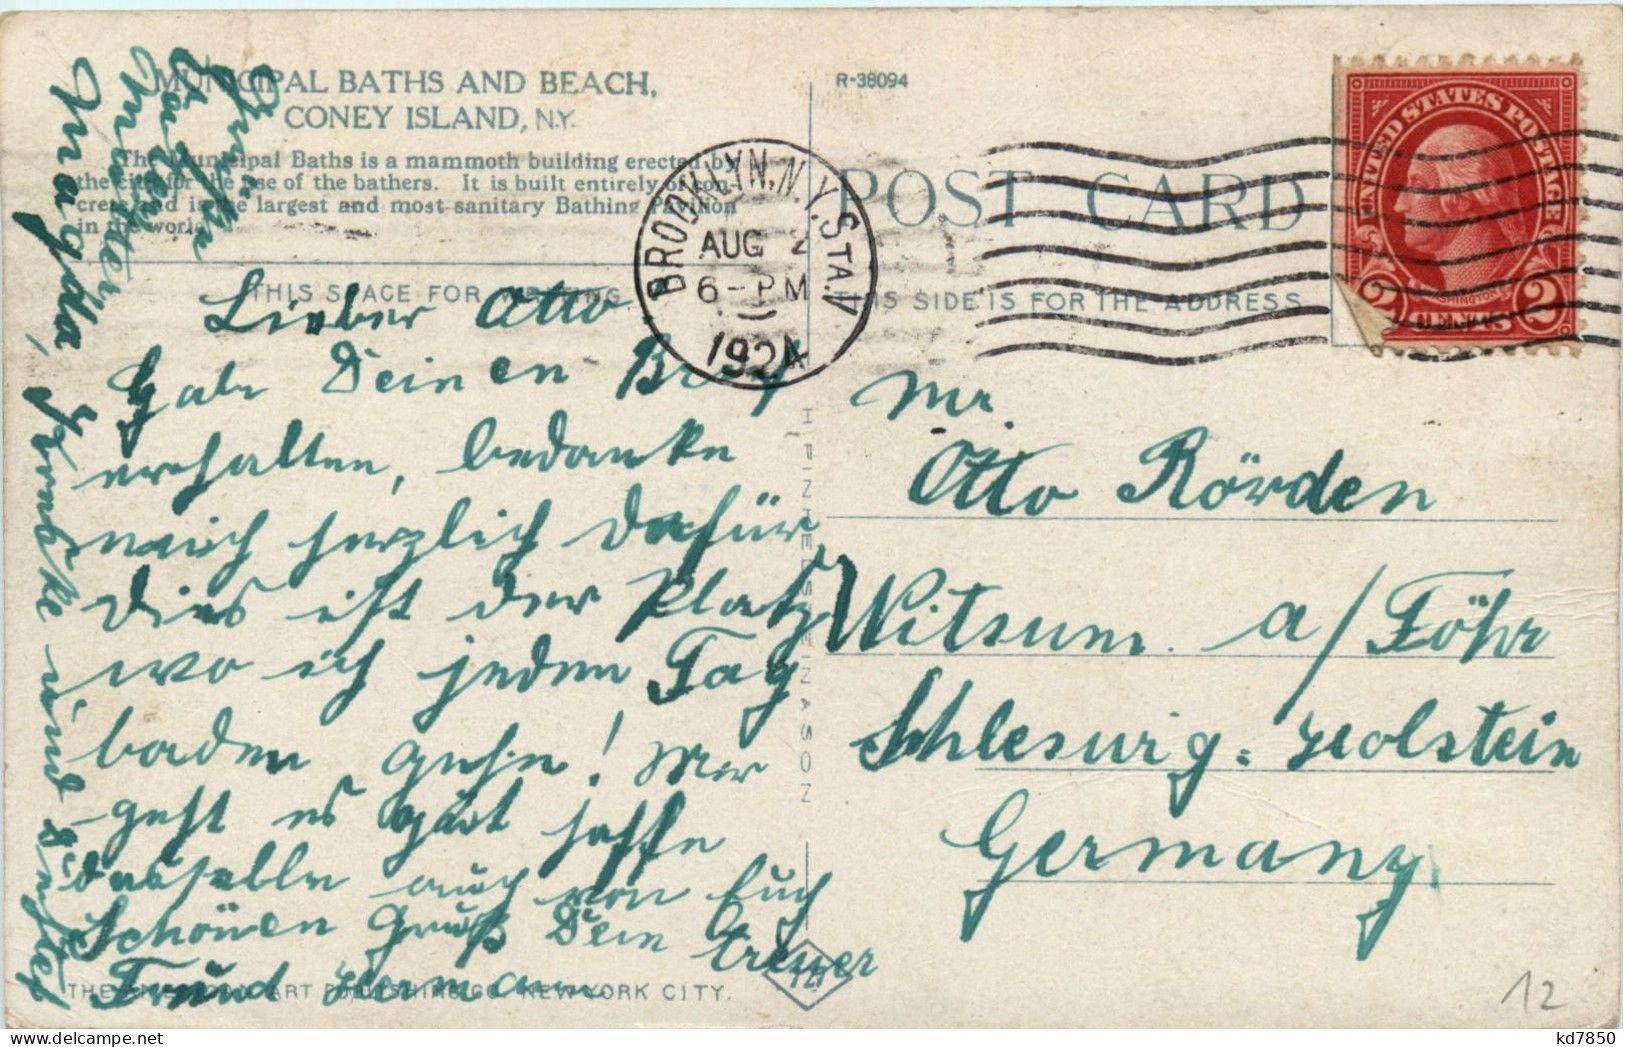 MUNICIPAL BATHS AND BEACH,
CONEY ISLAND, N.Y.
The Municipal Baths is a mammoth building erected by
the city for the use of the bathers. It is built entirely of con-
crete and is the largest and most sanitary Bathing Pavilion
in the world.
THIS SPACE FOR WRITING
Lieber Otto
Habe Deinen Brief
erhalten, bedanke
mich herzlich dafür,
Dies ist der Platz
wo ich jeden Tag
baden gehe! Mir
geht es gut hoffe
dasselbe auch von Euch
Schönen Gruß Dein treuer
Freund Hermann
Gruß an
Vater
Mutter
Magda, Frauke und
THE AMERICAN ART PUBLISHING CO. NEW YORK CITY.
H. FINKELSTEIN & SON
R-38094
POST CARD
THIS SIDE IS FOR THE ADDRESS
BROOKLYN, N.Y. STA. V
AUG 2
6-PM
1924
UNITED STATES POSTAGE
WASHINGTON
2 CENTS 2
Mr.
Otto Rörden
Witsum a/Föhr
Schleswig-Holstein
Germany
12
kd7850